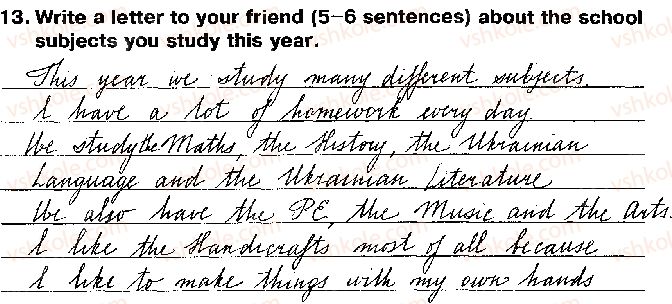 13. Write a letter to your friend (5–6 sentences) about the school
subjects you study this year.
This year we study many different subjects.
I have a lot of homework every day
We study the Maths, the History, the Ukrainian
Language and the Ukrainian Literature
We also have the PE, the Music and the Arts.
I like the Handicrafts most of all because
I like to make things with my own hands